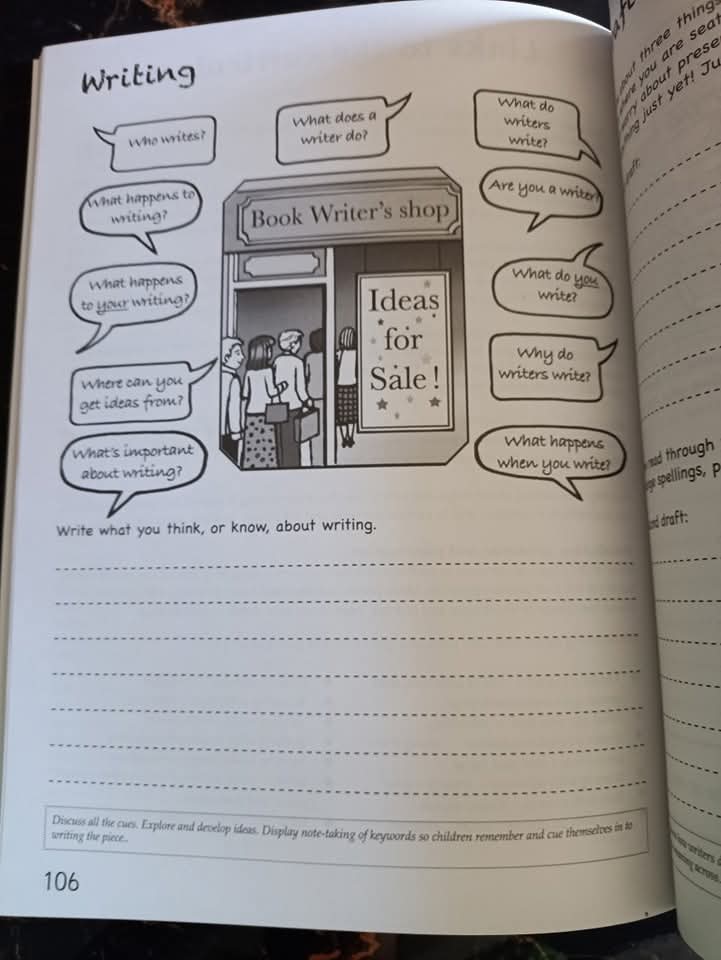 Writing
Who writes?
What does a
writer do?
What do
writers
write?
What happens to
writing?
Are you a writer?
Book Writer's shop
What happens
to your writing?
What do you
write?
Ideas
for
Sale!
Where can you
get ideas from?
Why do
writers write?
What's important
about writing?
What happens
when you write?
Write what you think, or know, about writing.
Discuss all the cues. Explore and develop ideas. Display note-taking of keywords so children remember and cue themselves in to
writing the piece..
106
about three things
here you are seat
about prese
just yet! Ju
read through
spellings, p
draft:
writers
across.